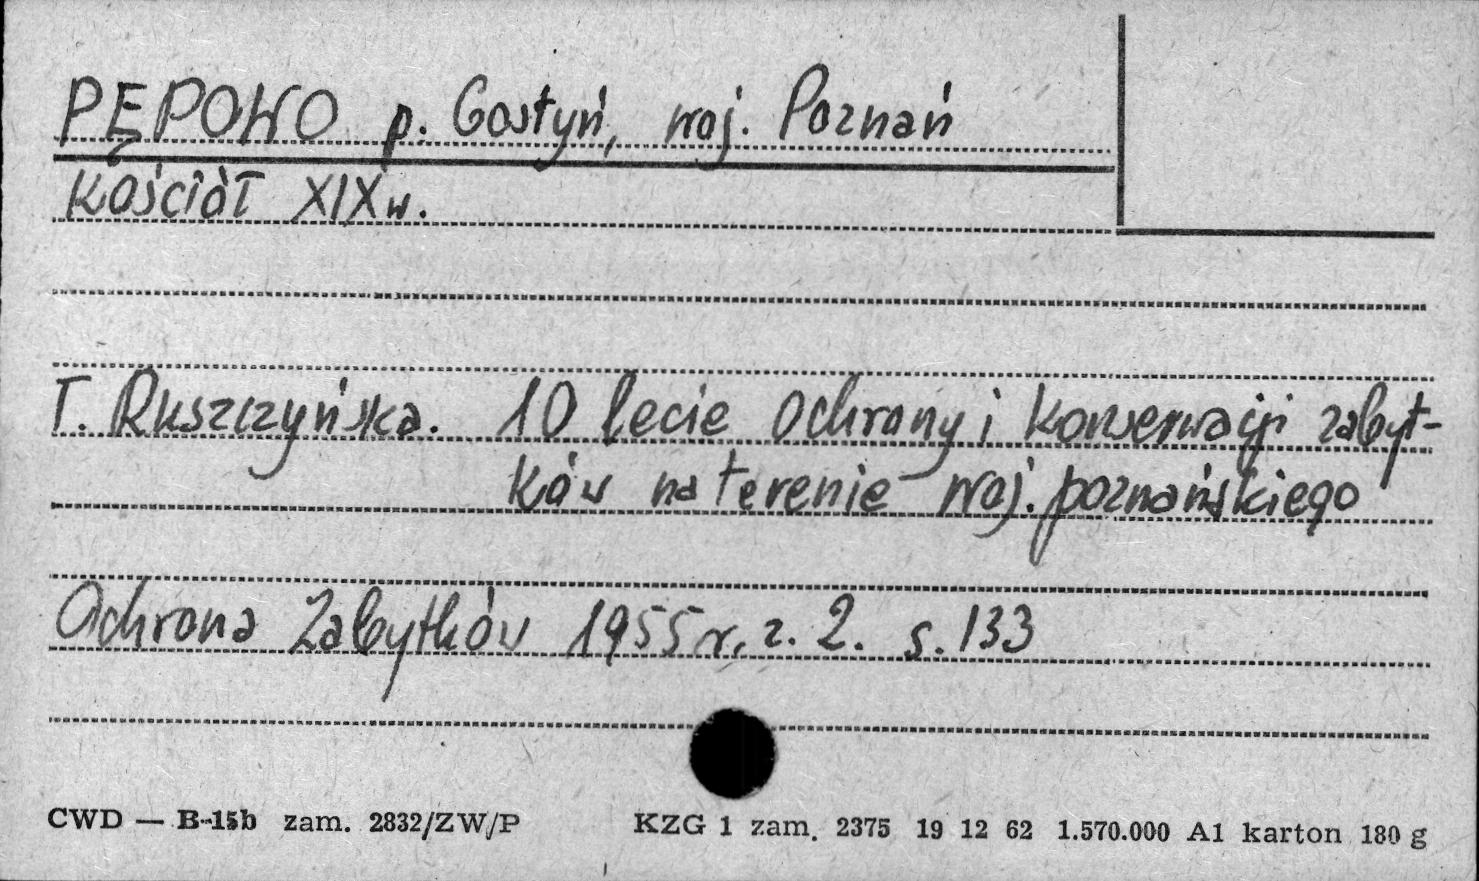 PĘPOWO p. Gostyń, woj. Poznań
Kościół XIX w.
T. Ruszczyńska. 10 lecie Ochrony i Konserwacji zabyt-
ków na terenie woj. poznańskiego
Ochrona Zabytków 1955 r. z. 2. s. 133
CWD — B-15b zam. 2832/ZW/P KZG 1 zam. 2375 19 12 62 1.570.000 A1 karton 180 g